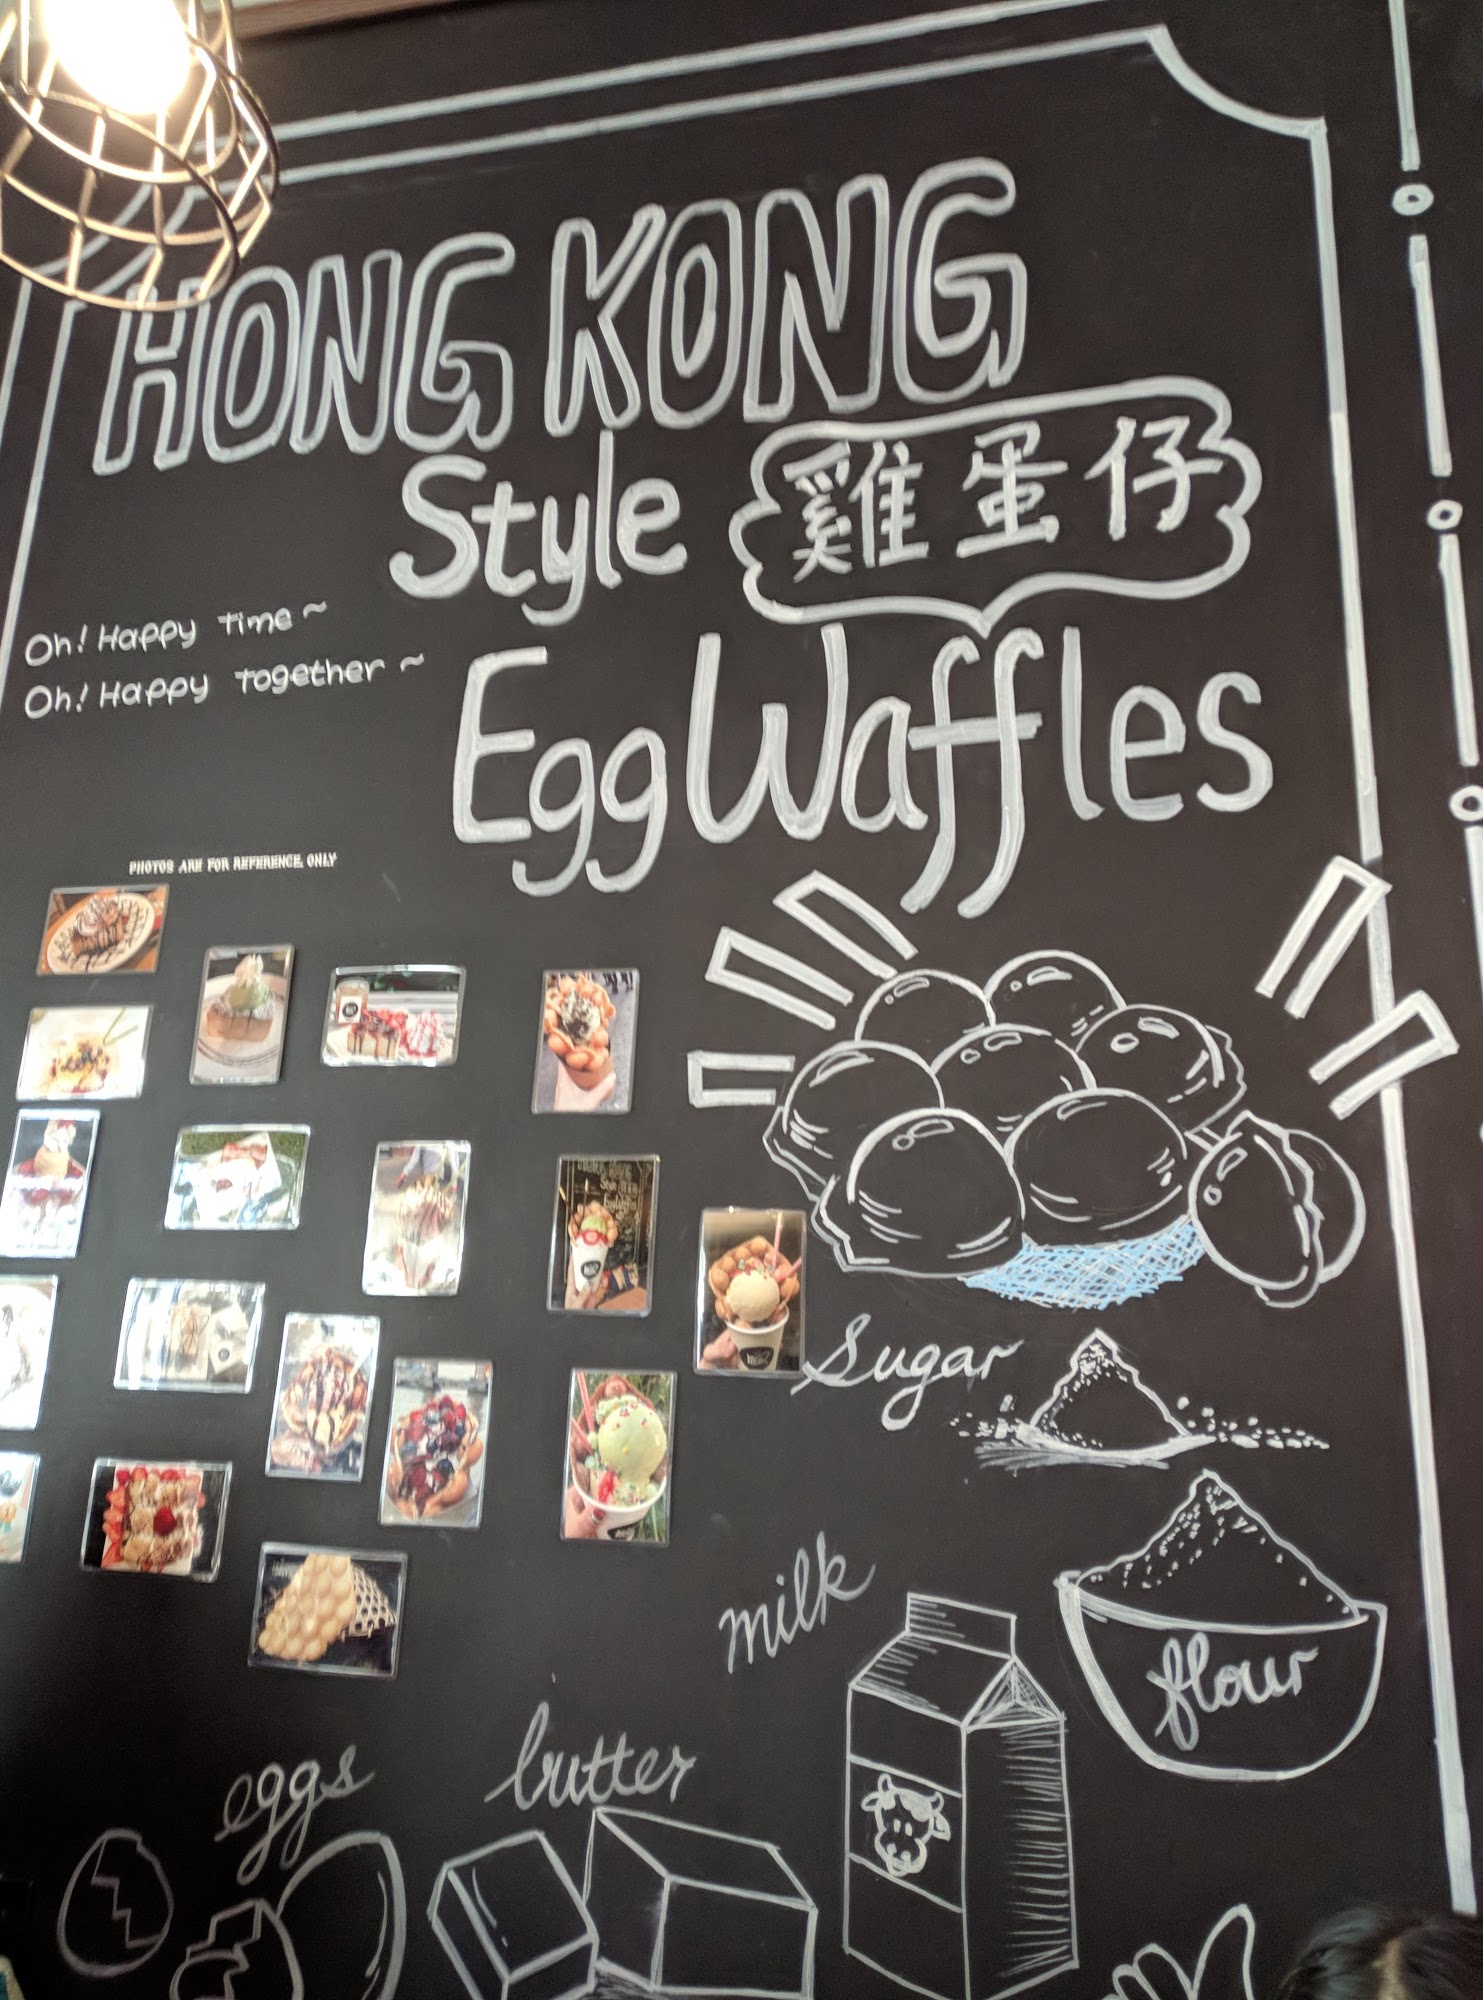 HONG KONG
Style 雞蛋仔
Egg Waffles
Oh! Happy Time~
Oh! Happy Together~
PHOTOS ARE FOR REFERENCE ONLY
Sugar
milk
flour
butter
eggs